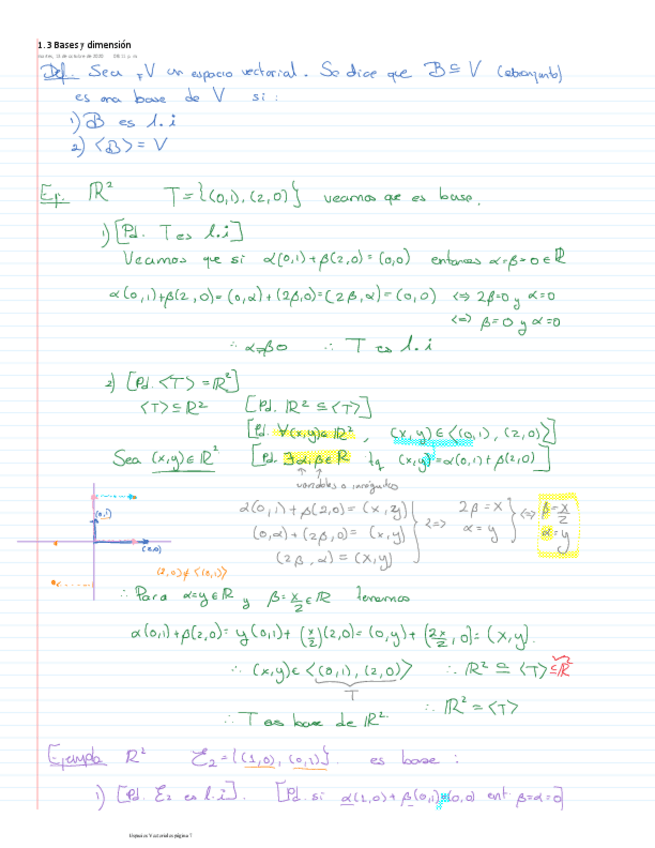 1.3 Bases y dimensión
Def. Sea V un espacio vectorial. Se dice que B ⊆ V (subconjunto)
es una base de V si:
1) B es l.i
2) ⟨B⟩ = V
Ej. ℝ² T = {(0,1), (2,0)} veamos que es base.
1) [Pd. T es l.i]
Veamos que si α(0,1)+β(2,0)=(0,0) entonces α=β=0∈ℝ
α(0,1)+β(2,0)=(0,α)+(2β,0)=(2β,α)=(0,0) ⟺ 2β=0 y α=0
⟺ β=0 y α=0
∴ α=β=0 ∴ T es l.i
2) [Pd. ⟨T⟩ = ℝ²]
⟨T⟩ ⊆ ℝ² [Pd. ℝ² ⊆ ⟨T⟩]
[Pd. ∀(x,y)∈ℝ², (x,y) ∈ ⟨(0,1), (2,0)⟩]
Sea (x,y)∈ℝ² [Pd. ∃α,β∈ℝ tq (x,y)=α(0,1)+β(2,0)]
variables o incógnitas
α(0,1)+β(2,0)=(x,y)
(0,α)+(2β,0)=(x,y)
(2β,α)=(x,y)
⟺ 2β=x
α=y
⟺ β=x/2
α=y
(0,1)
(2,0)∉⟨(0,1)⟩
∴ Para α=y∈ℝ y β=x/2∈ℝ tenemos
α(0,1)+β(2,0)=y(0,1)+(x/2)(2,0)=(0,y)+(2x/2,0)=(x,y).
∴ (x,y)∈⟨(0,1),(2,0)⟩ ∴ ℝ² ⊆ ⟨T⟩ ⊆ℝ²
T
∴ ℝ² = ⟨T⟩
∴ T es base de ℝ²
Ejemplo ℝ² ℰ₂={(1,0),(0,1)}. es base :
1) [Pd. ℰ₂ es l.i]. [Pd. si α(1,0)+β(0,1)=(0,0) ent. β=α=0]
Espacios Vectoriales página 7